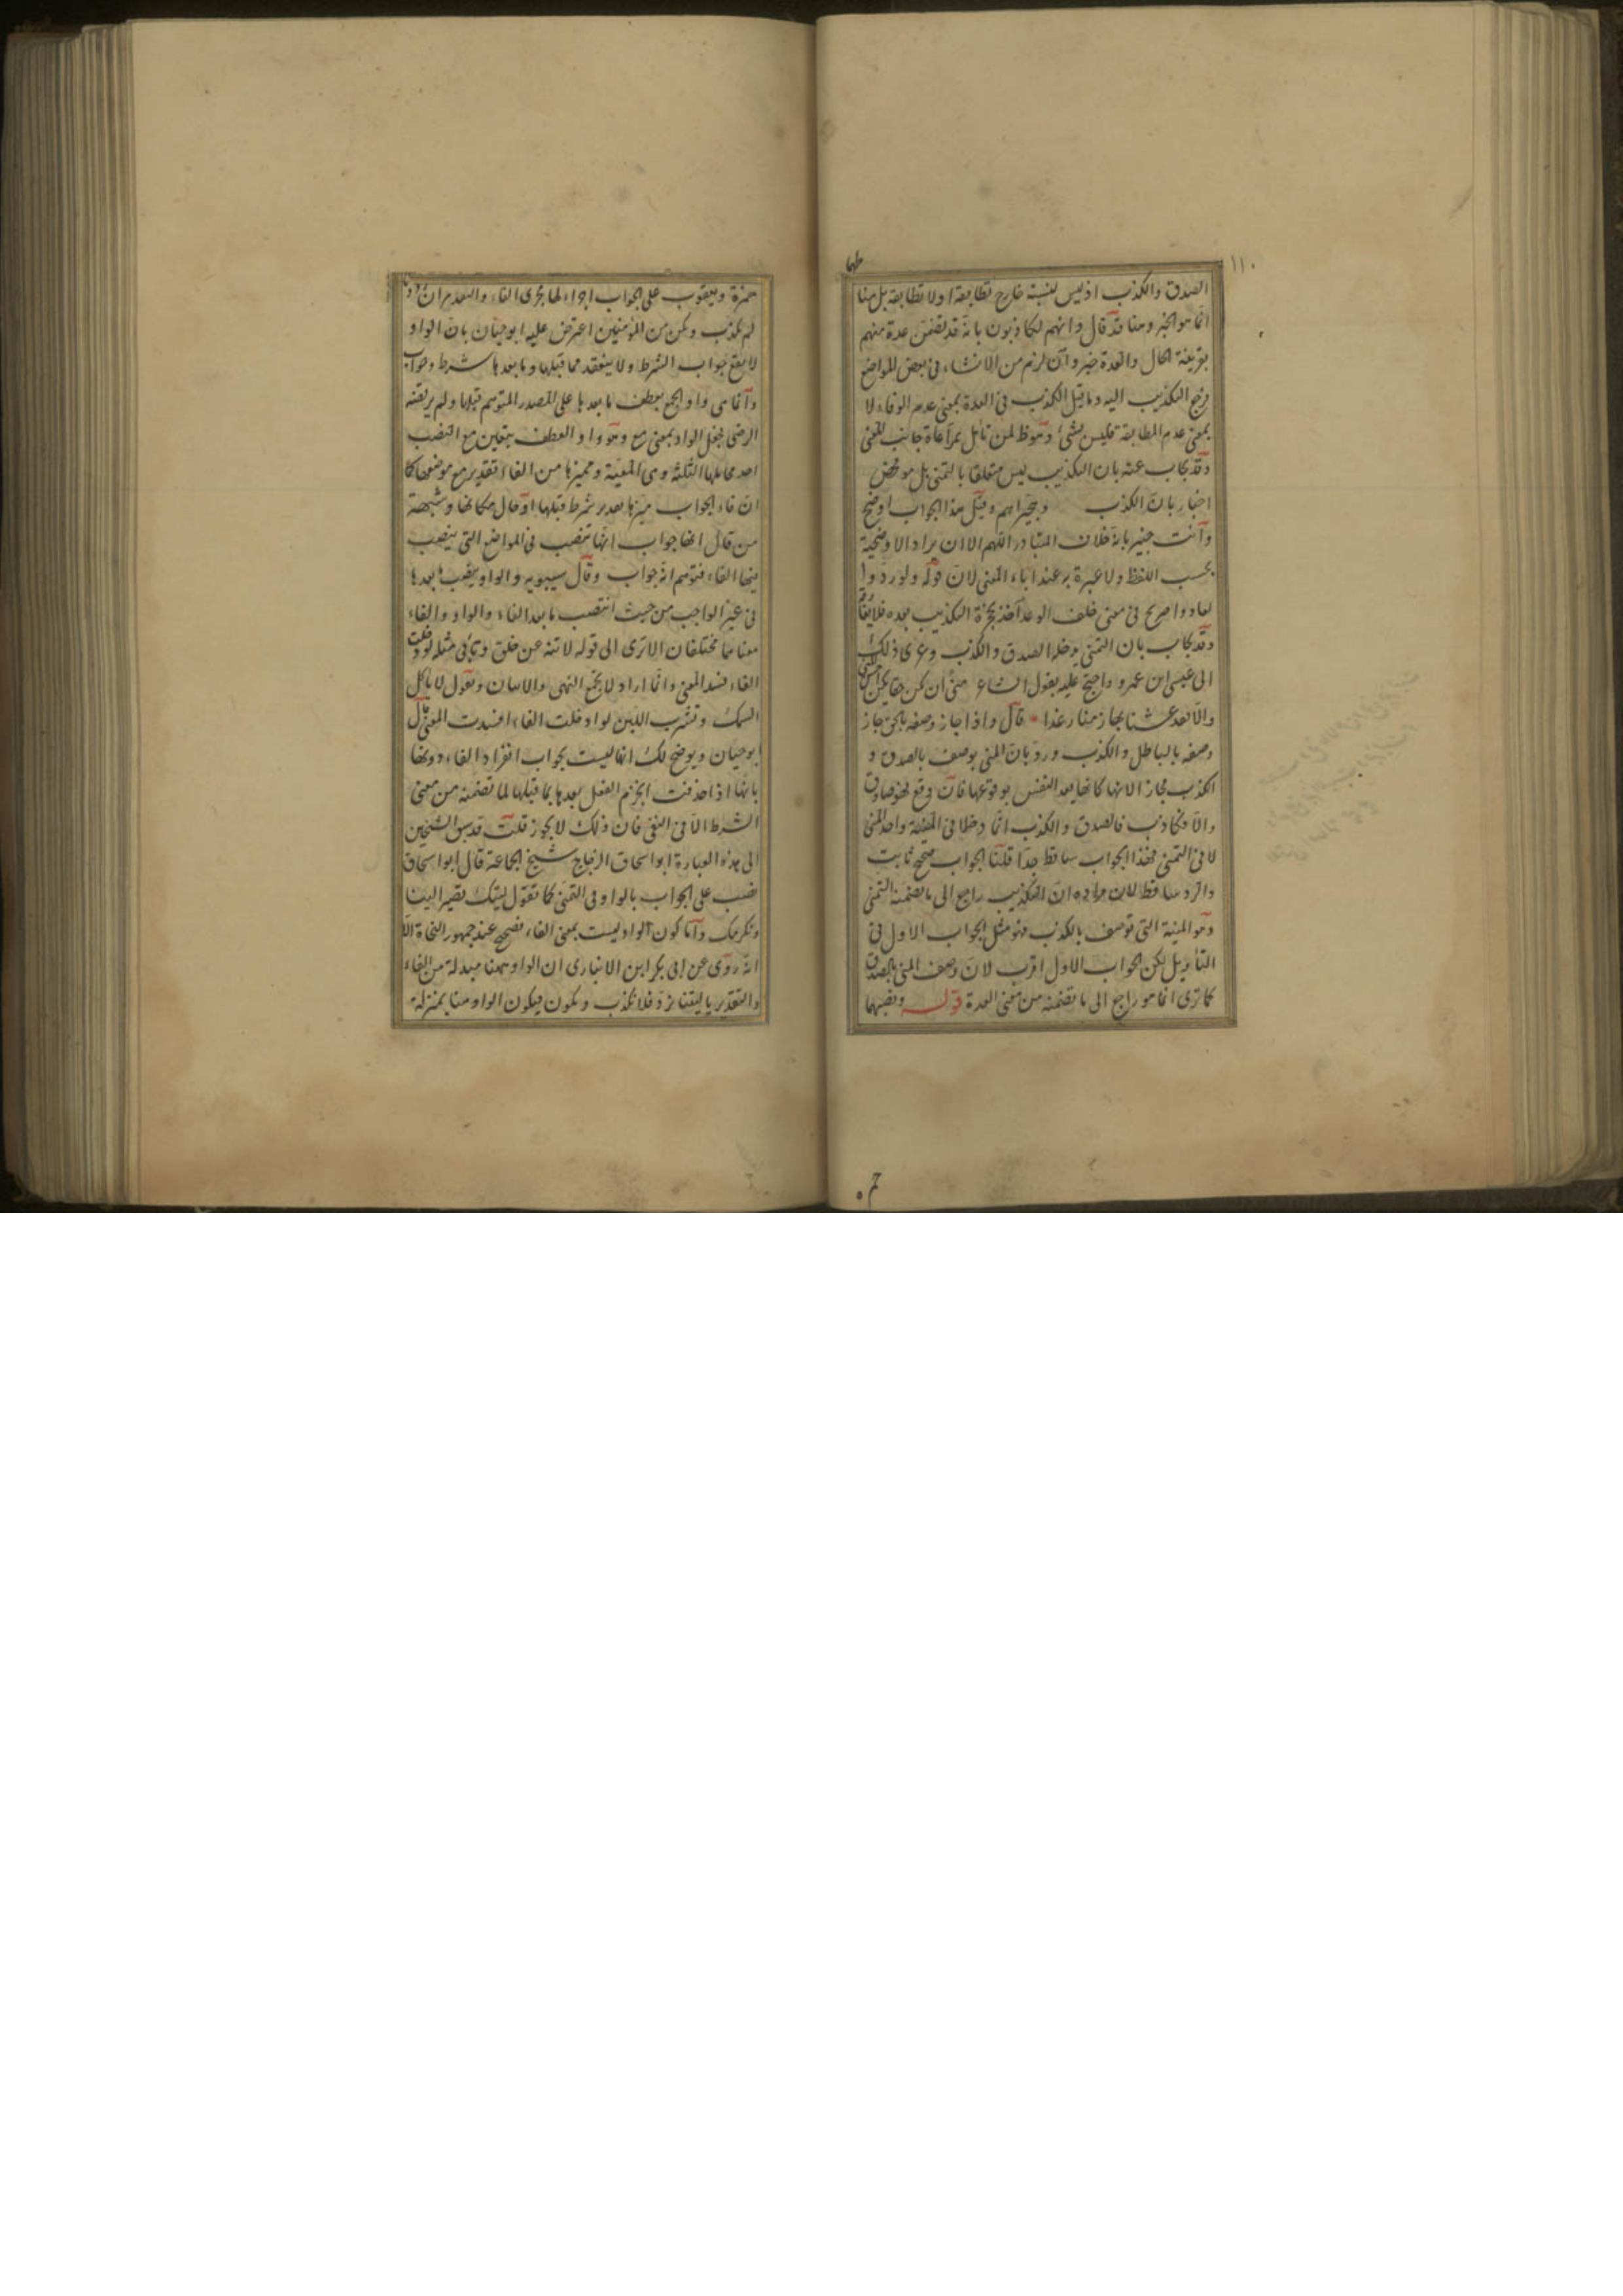 ١١٠
الصدق والكذب اذ ليس لنسبته خارج تطابقه او لا تطابقه بل هنا
انما هو الخبر وهنا قد قال وانهم لكاذبون بانه قد تضمن عدة منهم
بقرينة الحال والعدة خبر وان لزم من الانشاء في بعض المواضع
فرجع التكذيب اليه وما قيل الكذب في العدة بمعنى عدم الوفاء لا
بمعنى عدم المطابقة فليس بشئ وهو ظ لمن تأمل بمراعاة جانب المعنى
وقد يجاب عنه بان التكذيب ليس متعلقا بالتمنى بل هو محض
اخبار بان الكذب وهجيراهم وقيل هذا الجواب اوضح
وانت خبير بانه خلاف المتبادر اللهم الا ان يراد الاوضحية
بحسب اللفظ ولا عبرة به عند اباء المعنى لان قوله ولو ردوا
لعادوا صريح في معنى خلف الوعد آخذ بحجزة التكذيب بعده
وقد يجاب بان التمنى يدخله الصدق والكذب وعزى ذلك
الى عيسى ابن عمرو واحتج عليه بقول الشاعر منى ان تكن حقا يكن احسن المنى
والا فقد عشنا بها زمنا رغدا قال واذا جاز وصفه بالحق جاز
وصفه بالباطل والكذب ورد بان المنى يوصف بالصدق و
الكذب مجاز الانها كانها يعد النفس بوقوعها فان وقع فهو صادق
والا فكاذب فالصدق والكذب انما دخلا في المنية واحد المنى
لا في التمنى فهذا الجواب ساقط جدا قلنا الجواب صحيح ثابت
والرد ساقط لان مراده ان التكذيب راجع الى ما تضمنه التمنى
وهو المنية التي توصف بالكذب فهو مثل الجواب الاول في
التأويل لكن الجواب الاول اقرب لان وصف المنى بالصدق
كما ترى انما هو راجع الى ما تضمنه من معنى العدة قوله ونصبهما
حمزة ويعقوب على الجواب اجراء لها مجرى الفاء والتقدير ان رددنا
لم نكذب ونكن من المؤمنين اعترض عليه ابو حيان بان الواو
لا يقع جواب الشرط ولا ينعقد مما قبلها وما بعدها شرط وجواب
وانما هي واو الجمع يعطف ما بعدها على المصدر المتوهم قبلها ولم يرتضه
الرضى بجعل الواو بمعنى مع وهو واو العطف يتعين مع النصب
احد محاملها الثلثة وهي المعية ومميزها من الفاء تقدير مع موضعها كما
ان فاء الجواب ميزها تقدير شرط قبلها او حال مكانها وشبهة
من قال انها جواب انها تنصب في المواضع التي ينصب
فيها الفاء فتوهم انه جواب وقال سيبويه والواو ينصب ما بعدها
في غير الواجب من حيث انتصب ما بعد الفاء والواو والفاء
معناهما مختلفان الا ترى الى قوله لا تنه عن خلق وتأتى مثله لو دخلت
الفاء فسد المعنى وانما اراد لا يجتمع النهى والاتيان وتقول لا تأكل
السمك وتشرب اللبن لو ادخلت الفاء افسدت المعنى قال
ابو حيان ويوضح لك انها ليست بجواب انفراد الفاء دونها
بانها اذا حذفت انجزم الفعل بعدها بما قبلها لما تضمنه من معنى
الشرط الا في النفي فان ذلك لا يجوز قلت قد سبق الشيخين
الى هذه العبارة ابو اسحاق الزجاج شيخ الجماعة قال ابو اسحاق
نصب على الجواب بالواو في التمنى كما تقول ليتك تصير الينا
ونكرمك واما كون الواو ليست بمعنى الفاء فصحيح عند جمهور النحاة الا
انه روى عن ابى بكر ابن الانبارى ان الواو ههنا مبدلة من الفاء
والتقدير يا ليتنا نرد فلا نكذب ونكون فيكون الواو هنا بمنزلة